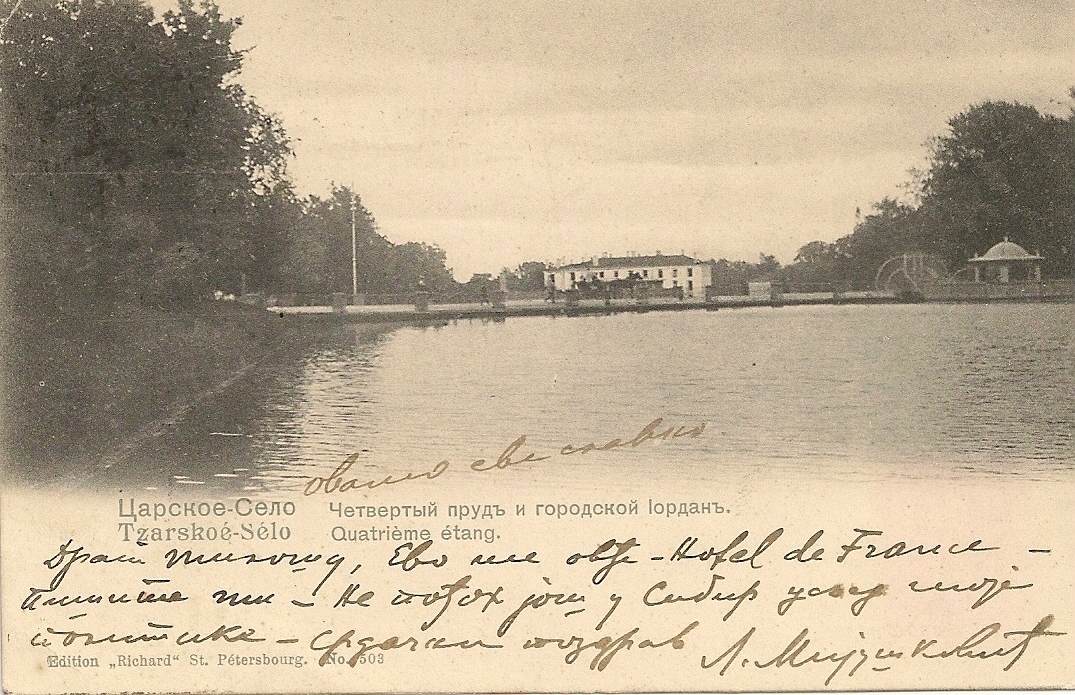 овамо све славно
Царское-Село Четвертый прудъ и городской Iорданъ.
Tzarskoé-Sélo Quatrième étang.
Драги Ево ме овђе - Hotel de France -
Пишите ми - Не пођох још у Сибир моје
политике - срдачан поздрав
Edition „Richard“ St. Pétersbourg. No. 503